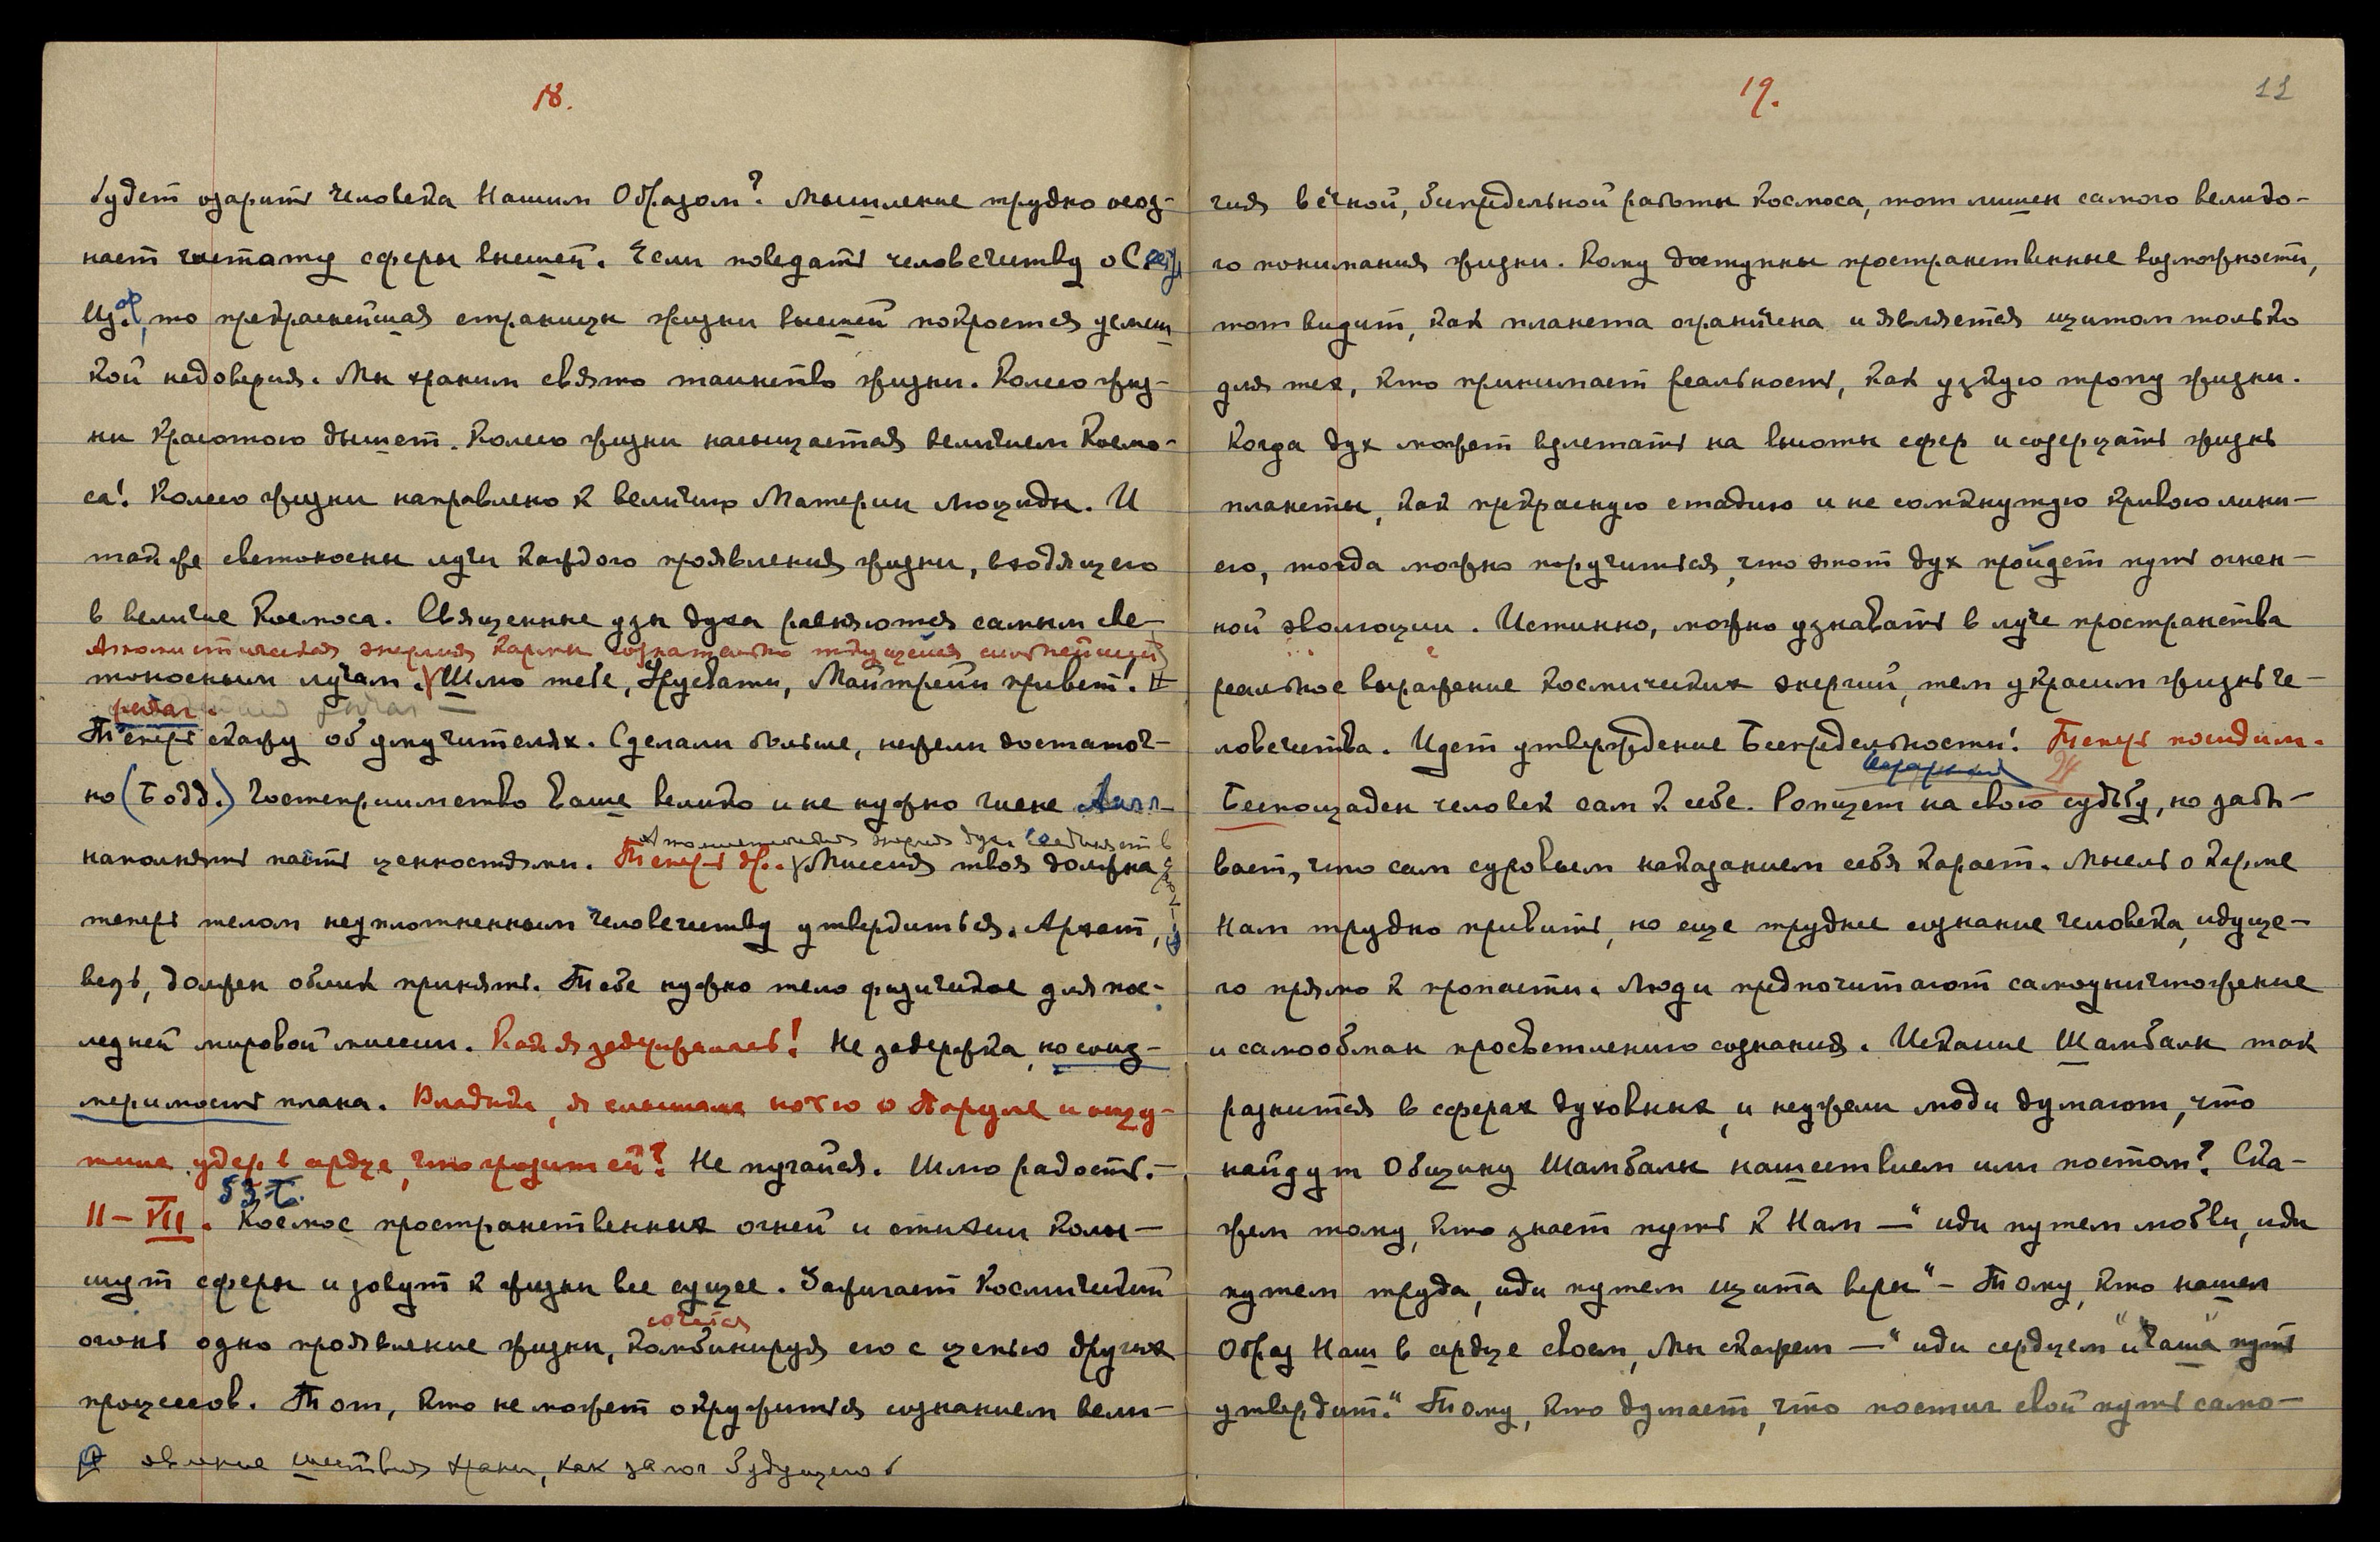 18.
будет озарить человека Нашим Образом? Мышление трудно осоз-
нает чистоту сферы высшей. Если поведать человечеству о
то прекраснейшая страницы жизни высшей покроется усмеш
кой недоверия. Мы храним свято таинство жизни. Колесо жиз-
ни Красотою дышет. Колесо жизни насыщается величием Космо-
са! Колесо жизни направлено к величию Материи Люциды. И
так же светоносны лучи каждого проявления жизни, входящего
в величие Космоса. Священные узы духа равняются самым све-
Атомистическая энергия Кармы сознательно
тоносным лучам. Шлю тебе, Урусвати, Майтрейи привет!
рычаг.
Теперь скажу об умучителях. Сделали больше, нежели достаточ-
но (Бодд.) Гостеприимство ваше велико и не нужно гиене
Атомистическая энергия духа
наполнять пасть ценностями. Теперь др. Миссия твоя должна
теперь телом неуплотненным человечеству утвердиться. Архат,
ведь, должен облик принять. Тебе нужно тело физическое для пос-
ледней мировой миссии. Как я задержалась! Не задержка, но соиз-
меримость плана. Владыка, я слышала ночью о Паруле и ощу-
тила удар в сердце, что грозит ей? Не пугайся. Шлю радость.-
§3 Б.
11-VII. Космос пространственных огней и стихии колы-
шут сферы и зовут к жизни все сущее. Зажигает Космический
сочетая
огонь одно проявление жизни, комбинируя его с цепью других
процессов. Тот, кто не может окружиться сознанием вели-
явление шествия храни, как залог будущего
19.
11
чия вечной, беспредельной работы Космоса, тот лишен самого велико-
го понимания жизни. Кому доступны пространственные возможности,
тот видит, как планета ограничена и является щитом только
для тех, кто принимает реальность, как узкую тропу жизни.
Когда дух может взлетать на высоты сфер и созерцать жизнь
планеты, как прекрасную стадию и не сомкнутую кривою лини-
ею, тогда можно поручиться, что этот дух пройдет путь огнен-
ной эволюции. Истинно, можно узнавать в луче пространства
реальное выражение космических энергий, тем украсим жизнь че-
ловечества. Идет утверждение Беспредельности! Теперь посидим.
24
Беспощаден человек сам к себе. Ропщет на свою судьбу, но забы-
вает, что сам суровым наказанием себя карает. Мысль о карме
Нам трудно привить, но еще труднее сознание человека, идуще-
го прямо к пропасти. Люди предпочитают самоуничтожение
и самообман просветлению сознания. Искание Шамбалы так
разнится в сферах духовных, и неужели люди думают, что
найдут Общину Шамбалы нашествием или постом? Ска-
жем тому, кто знает путь к Нам —“ иди путем любви, иди
путем труда, иди путем щита веры“ - Тому, кто нашел
Образ Наш в сердце своем, Мы скажем —“ иди сердцем и “Чаша“ путь
утвердит.“ Тому, кто думает, что постиг свой путь само-